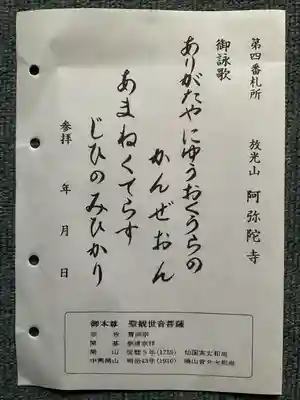 第四番札所 放光山 阿弥陀寺
御詠歌
ありがたやにゆうおくうらの
かんぜおん
あまねくてらす
じひのみひかり
参拝 年 月 日
御本尊 聖観世音菩薩
宗 曹洞宗
開 基
開 山 宝暦5年(1755)
中興開山 明治43年(1910)